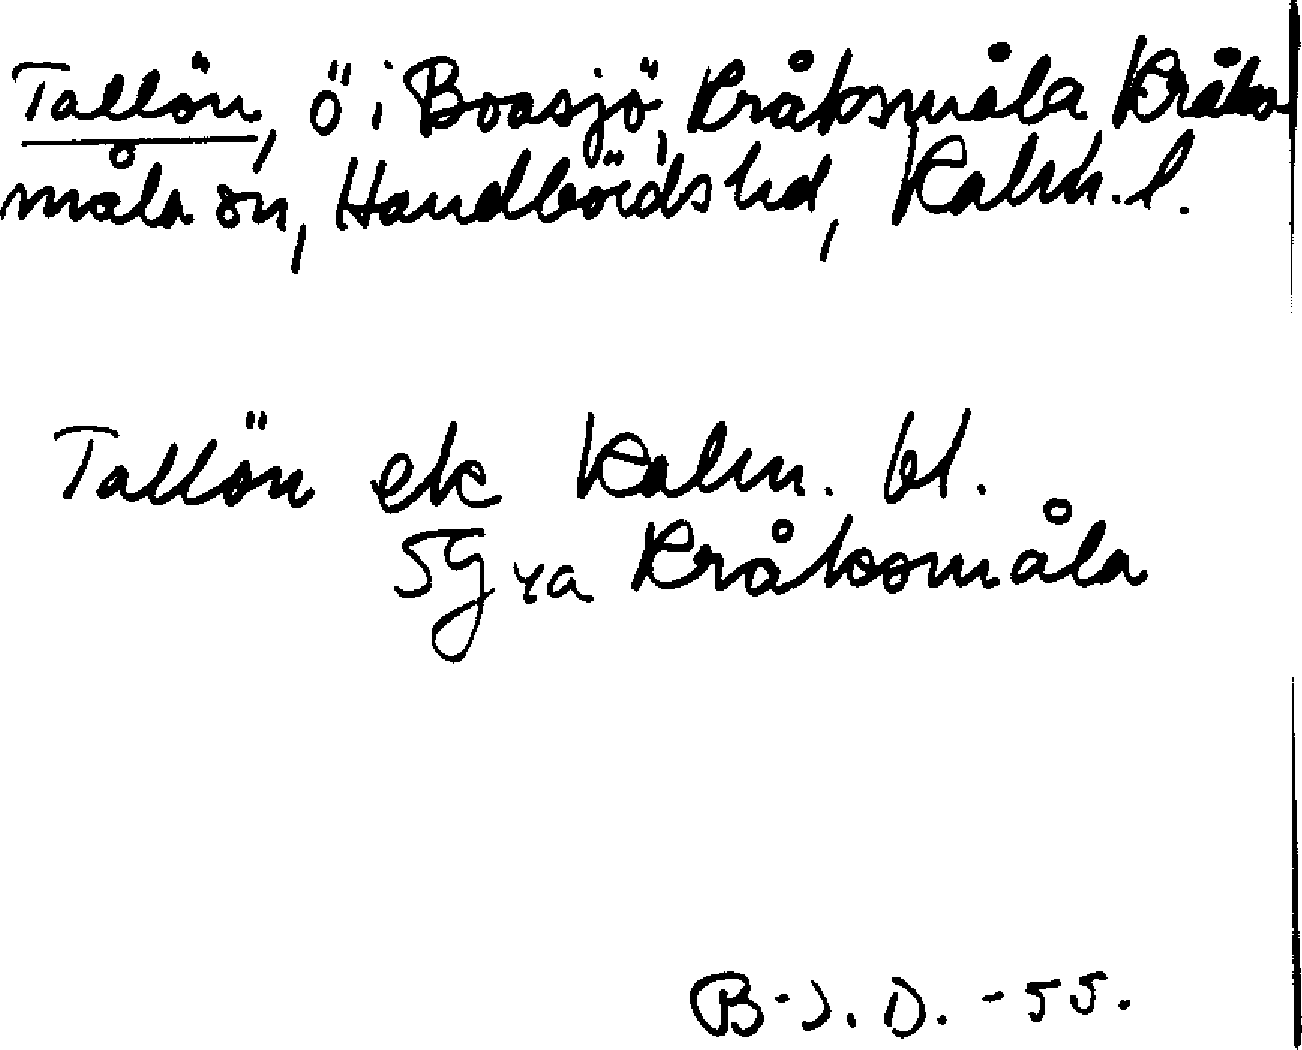 Tallön, ö i Boasjö, Kråksmåla, Kråks
måla sn, Handbörds hd, Kalm. l.
Tallön ek Kalm. bl.
5G ya Kråksmåla
B-J. D. -55.